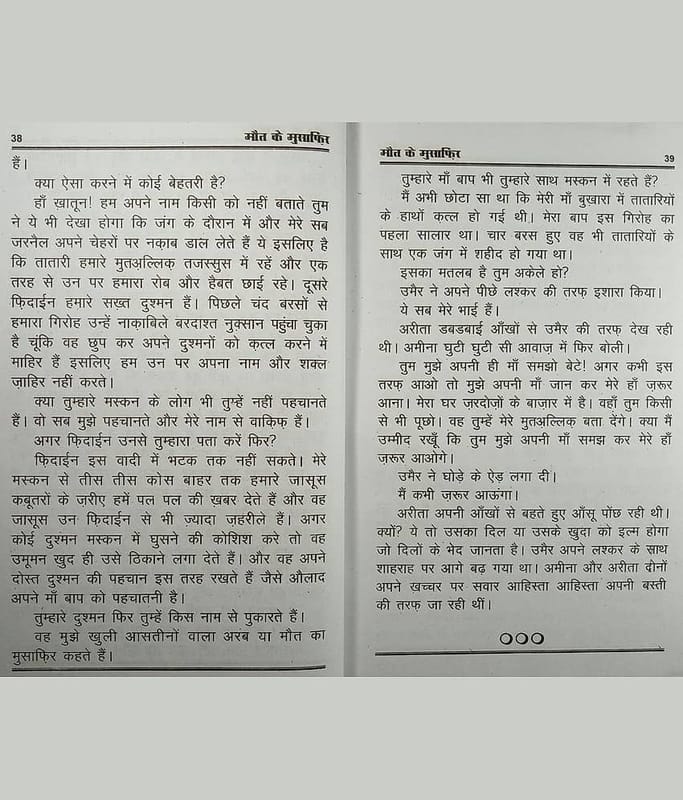 38
मौत के मुसाफ़िर
हैं।
क्या ऐसा करने में कोई बेहतरी है?
हाँ ख़ातून! हम अपने नाम किसी को नहीं बताते तुम
ने ये भी देखा होगा कि जंग के दौरान में और मेरे सब
जरनैल अपने चेहरों पर नक़ाब डाल लेते हैं ये इसलिए है
कि तातारी हमारे मुतअ़ल्लिक़ तजस्सुस में रहें और एक
तरह से उन पर हमारा रोब और हैबत छाई रहे। दूसरे
फ़िदाईन हमारे सख़्त दुश्मन हैं। पिछले चंद बरसों से
हमारा गिरोह उन्हें नाक़ाबिले बरदाश्त नुक़्सान पहुंचा चुका
है चूंकि वह छुप कर अपने दुश्मनों को क़त्ल करने में
माहिर हैं इसलिए हम उन पर अपना नाम और शक्ल
ज़ाहिर नहीं करते।
क्या तुम्हारे मस्कन के लोग भी तुम्हें नहीं पहचानते
हैं। वो सब मुझे पहचानते और मेरे नाम से वाक़िफ़ हैं।
अगर फ़िदाईन उनसे तुम्हारा पता करें फिर?
फ़िदाईन इस वादी में भटक तक नहीं सकते। मेरे
मस्कन से तीस तीस कोस बाहर तक हमारे जासूस
कबूतरों के ज़रीए हमें पल पल की ख़बर देते हैं और वह
जासूस उन फ़िदाईन से भी ज़्यादा ज़हरीले हैं। अगर
कोई दुश्मन मस्कन में घुसने की कोशिश करे तो वह
उमूमन ख़ुद ही उसे ठिकाने लगा देते हैं। और वह अपने
दोस्त दुश्मन की पहचान इस तरह रखते हैं जैसे औलाद
अपने माँ बाप को पहचानती है।
तुम्हारे दुश्मन फिर तुम्हें किस नाम से पुकारते हैं।
वह मुझे खुली आसतीनों वाला अरब या मौत का
मुसाफ़िर कहते हैं।
मौत के मुसाफ़िर
39
तुम्हारे माँ बाप भी तुम्हारे साथ मस्कन में रहते हैं?
मैं अभी छोटा सा था कि मेरी माँ बुख़ारा में तातारियों
के हाथों क़त्ल हो गई थी। मेरा बाप इस गिरोह का
पहला सालार था। चार बरस हुए वह भी तातारियों के
साथ एक जंग में शहीद हो गया था।
इसका मतलब है तुम अकेले हो?
उमैर ने अपने पीछे लश्कर की तरफ़ इशारा किया।
ये सब मेरे भाई हैं।
अरीता डबडबाई आँखों से उमैर की तरफ़ देख रही
थी। अमीना घुटी घुटी सी आवाज़ में फिर बोली।
तुम मुझे अपनी ही माँ समझो बेटे! अगर कभी इस
तरफ़ आओ तो मुझे अपनी माँ जान कर मेरे हाँ ज़रूर
आना। मेरा घर ज़रदोज़ों के बाज़ार में है। वहाँ तुम किसी
से भी पूछो। वह तुम्हें मेरे मुतअ़ल्लिक़ बता देंगे। क्या मैं
उम्मीद रखूँ कि तुम मुझे अपनी माँ समझ कर मेरे हाँ
ज़रूर आओगे।
उमैर ने घोड़े के ऐड़ लगा दी।
मैं कभी ज़रूर आऊंगा।
अरीता अपनी आँखों से बहते हुए आँसू पोंछ रही थी।
क्यों? ये तो उसका दिल या उसके ख़ुदा को इल्म होगा
जो दिलों के भेद जानता है। उमैर अपने लश्कर के साथ
शाहराह पर आगे बढ़ गया था। अमीना और अरीता दोनों
अपने खच्चर पर सवार आहिस्ता आहिस्ता अपनी बस्ती
की तरफ़ जा रही थीं।